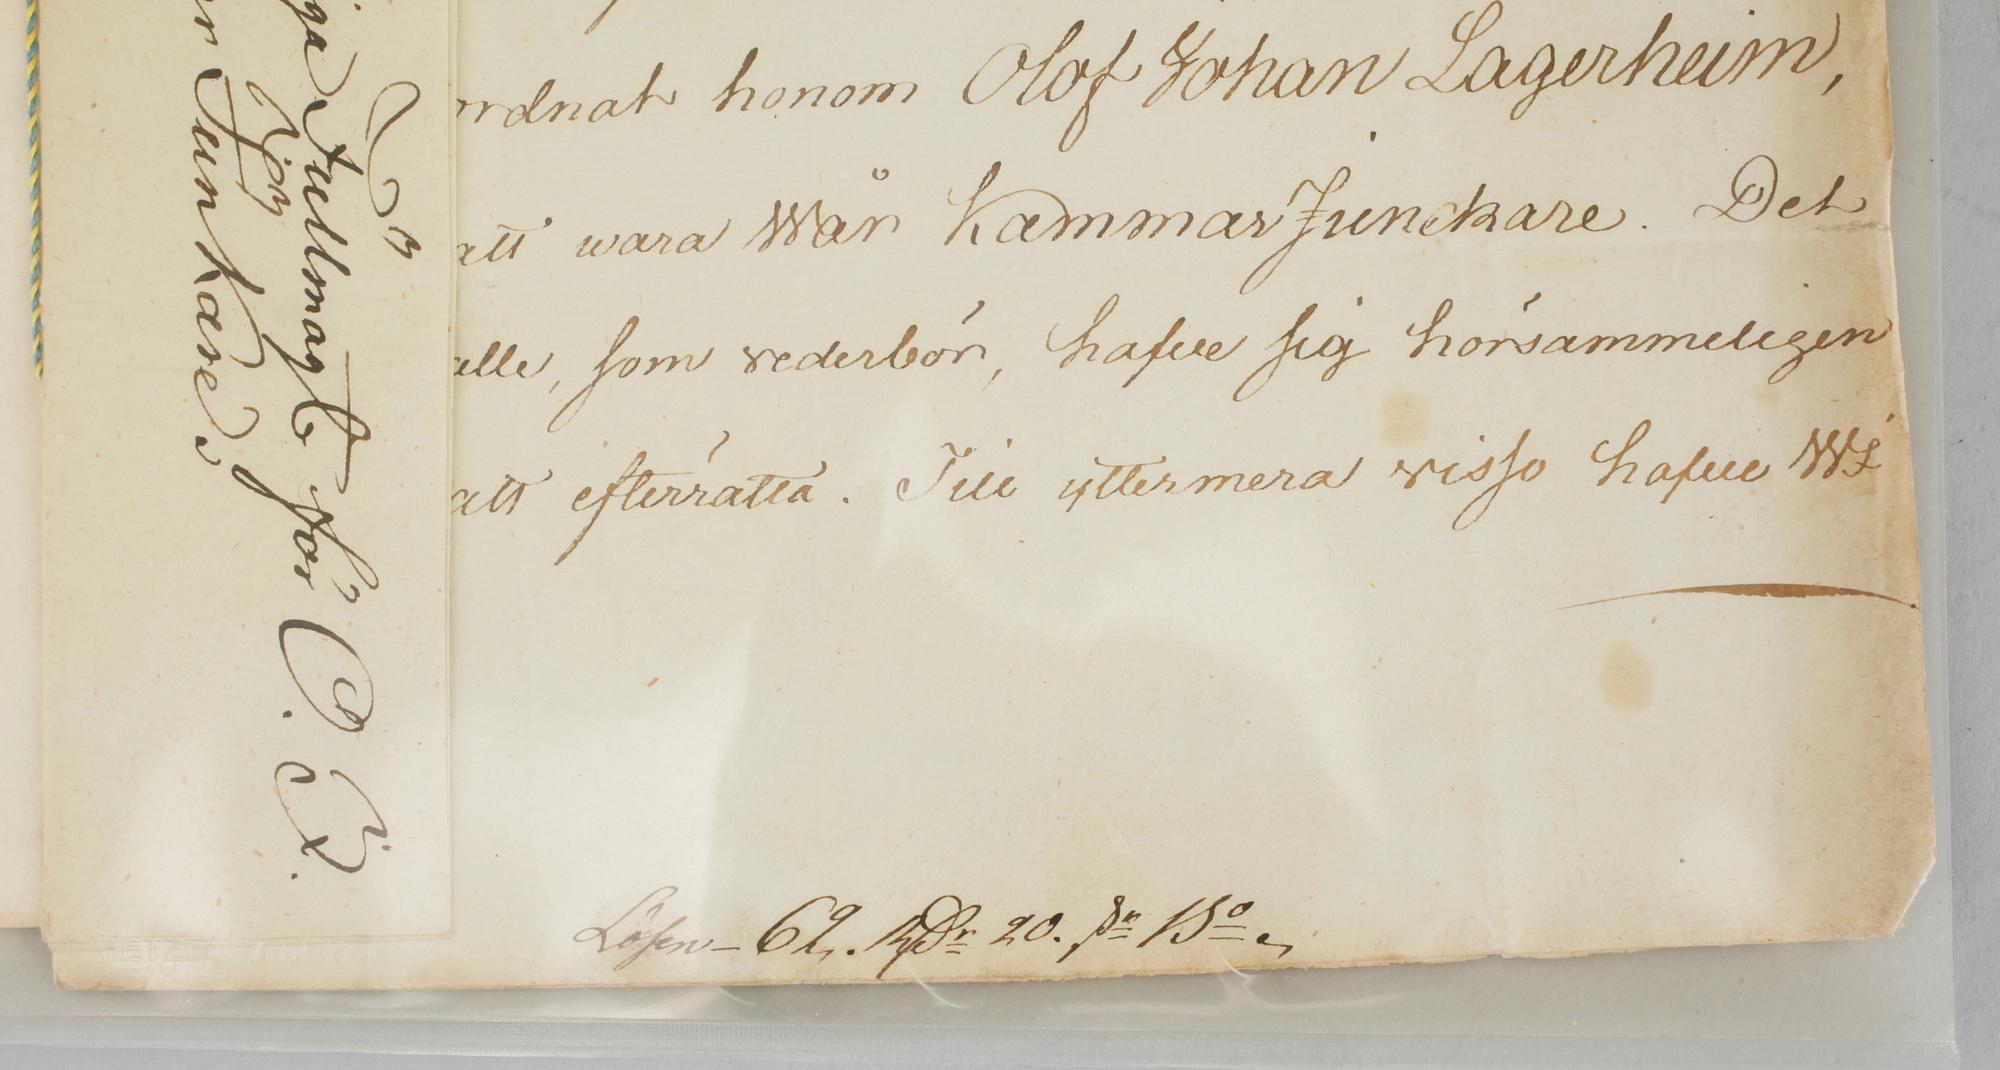 ordnat honom Olof Johan Lagerheim,
att wara Wår KammarJunckare. Det
alle, som vederbör, hafve sig hörsammeligen
att efterrätta. Till yttermera visso hafve Wi
Lösen – 62. RDr 20. s. Bo.
Fullmagt för O. J.
Junkare